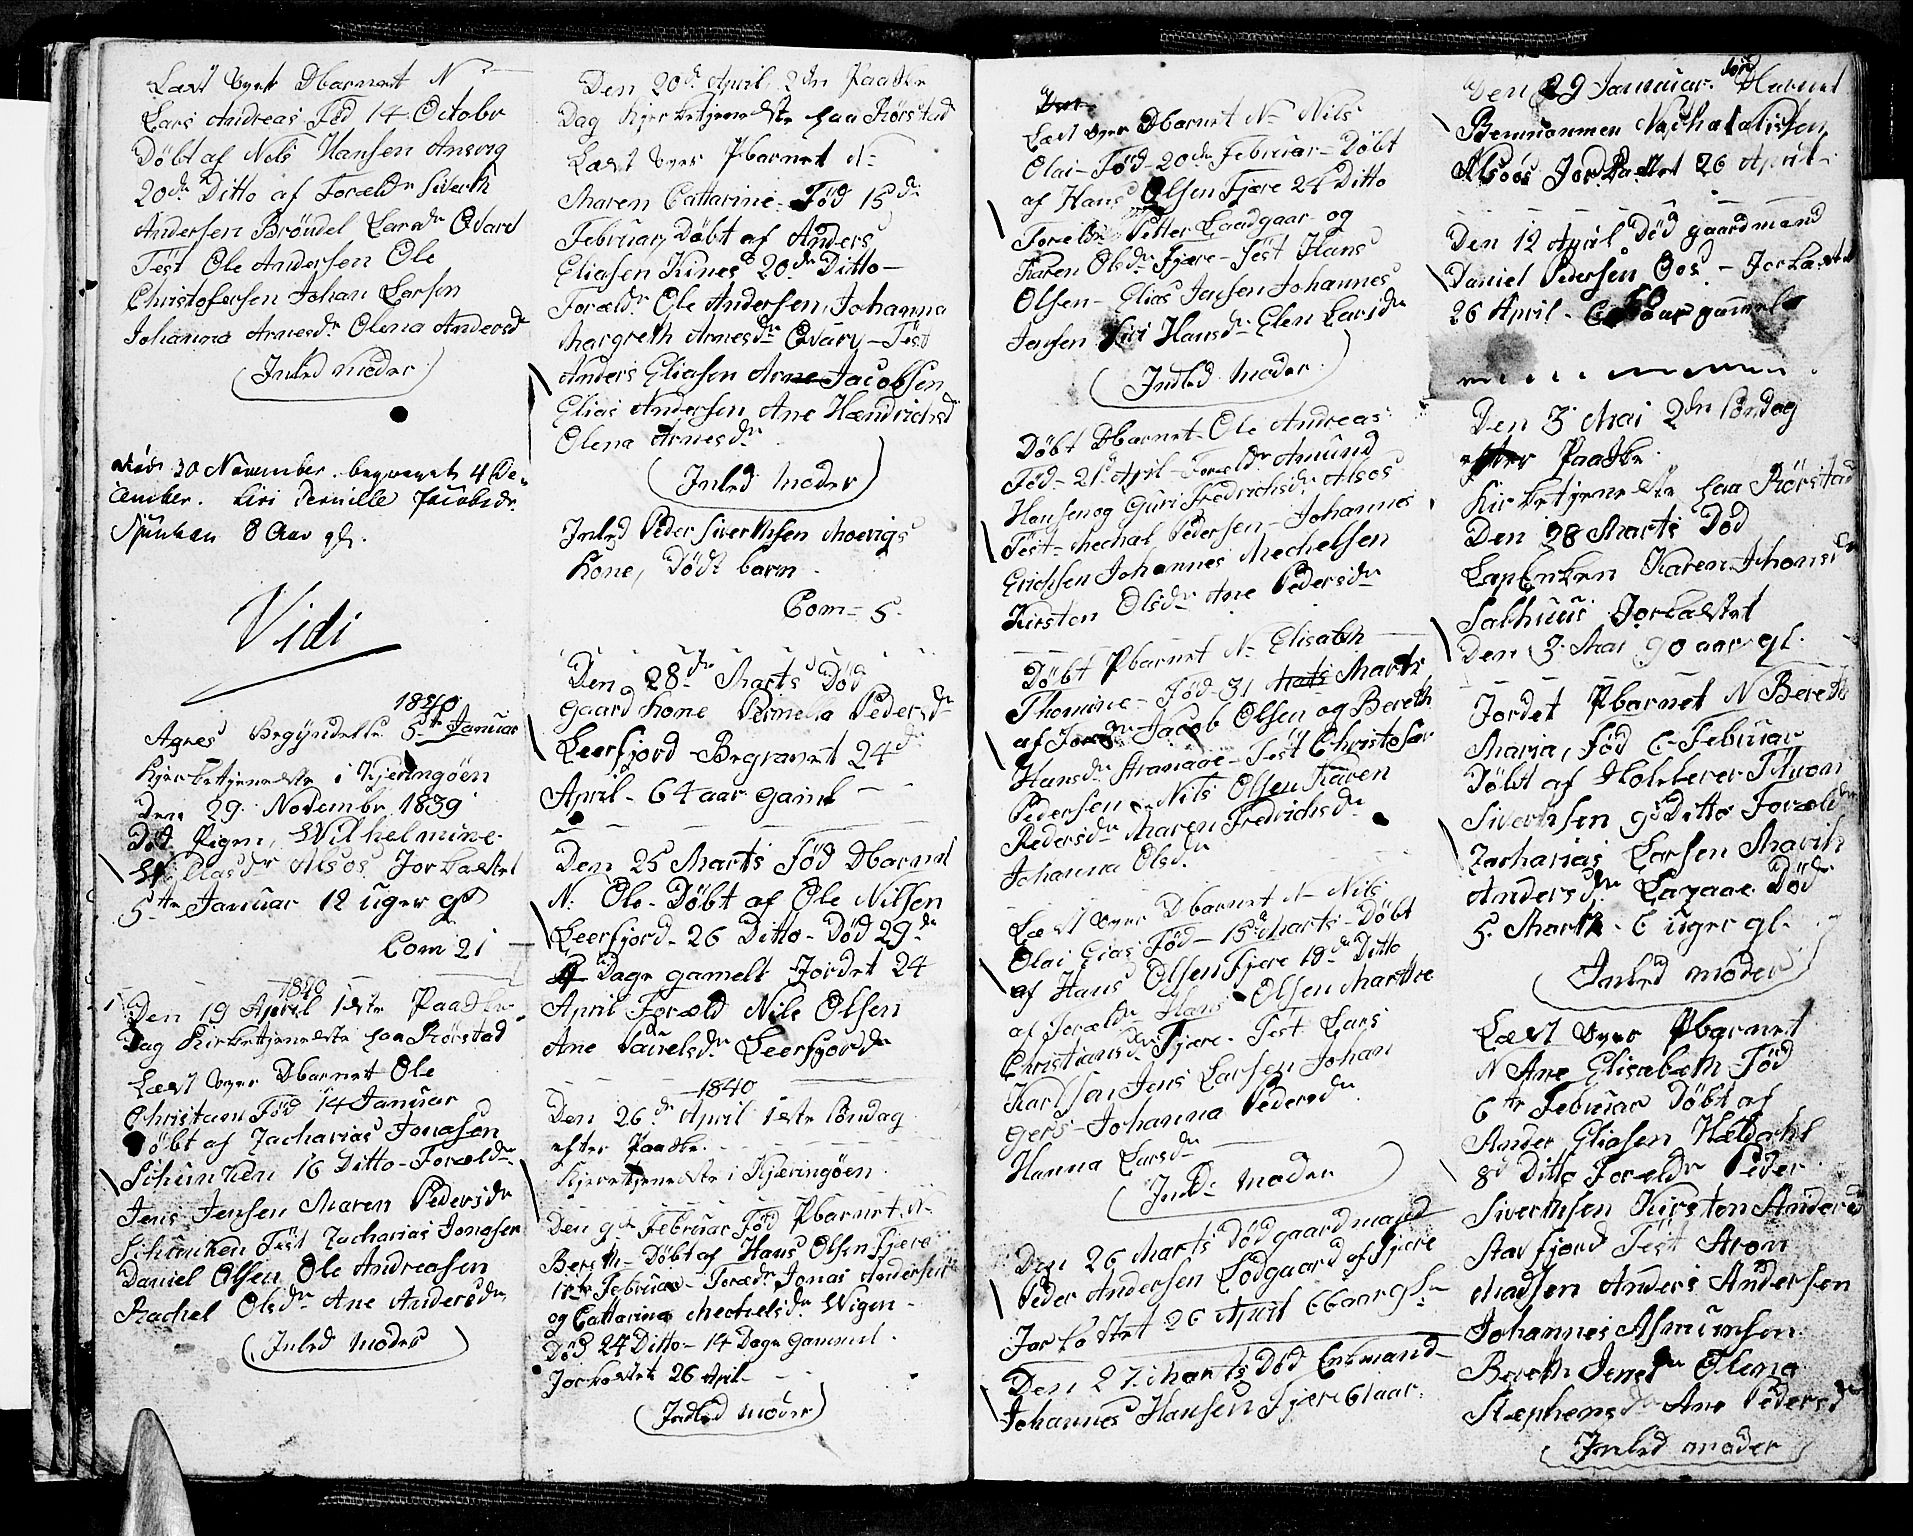 Læst over Dbarnet N
Lars Andreas Fød 14 Octobr
Döbt af Nels Hansen Ansvig
20de Ditto af Foreldr Siverth
Andersen Bröndel Larsdr Evard
Test Ole Andersen Ole
Christofersen Johan Larsen
Johanna Arnesdr Olena Andersdr
Inled moder
död 30 November. begravet 4 De-
cember. Siri Pernille Jacobsdr
Schunken 8 Aar gl.
Vidi
1840
Agnes Begyndelse 5te Januar
Kjerketjeneste i Kjeringöen
Den 29 November 1839
Död Pigen, Wilhelmine
Alsos Jorkastet
5te Januar 12 uger gl
Com 21
1840
Den 19 April 1ste Paaske
Dag Kirketjeneste paa Rörstad
Læst over Dbarnet Ole
Christian Föd 14 Januar
Döbt af Zacharias Jonasen
Schunken 16 Ditto - Foreldr
Jens Jensen Maren Pedersdr
Schunken Test Zacharias Jonasen
Daniel Olsen Ole Andreasen
Rachel Olsdr Ane Andersdr
Inled Moder
Den 20de April 2den Paaske
Dag Kjerketjeneste paa Rörstad
Læst over Pbarnet N-
Maren Cattarine Föd 15de
Februar Döbt af Anders
Eliasen Kines 20de Ditto-
Foreldr Ole Andersen, Johanna
Margreth Arnesdr Evarv - Test
Anders Eliasen Arne Jacobsen
Elias Andersen Ane Hendrichsd
Olena Arnesdr
Inled Moder
Inled Peder Siverthsen Moevigs
Kone, Dödt barn
Com = 5.
Den 28de Marts Död
Gaard Kone Pernella Pedersdr
Leerfjord - Begravet 24de
April - 64 aar gaml
Den 25 Marts Föd Dbarnet
N: Ole - Döbt af Ole Nilsen
Leerfjord - 26 Ditto - Död 29de
4 Dage gamelt Jordet 24
April Foreld Nils Olsen
Ane Paulsdr Leerfjord
1840
Den 26de April 1ste Söndag
efter Paaske
Kjerketjeneste i Kjæringöen
Den 9de Februar Föd Pbarnet N-
Bereth - Döbt af Hans Olsen Fjære
Februar - Foreldr Jonas Andersen
og Cattarina Mechelsdr Wigen -
Död 24 Ditto - 14 Dage gammel.
Jorkastet 26 April -
Indled Moder
Læst over Dbarnet N- Nils
Olai - Föd - 20de Februar - Döbt
af Hans Olsen Fjære 24 Ditto
Foreldr Petter Laadgaar og
Karen Olsdr Fjære - Test Hans
Olsen - Elias Jensen Johannes
Jensen Siri Hansdr Elen Larsdr
Indled Moder
Döbt Dbarnet Ole Andreas
Föd - 21de April - Foreldr Amund
Hansen og Guri Fredrichsdr Alsos
Test - Mechal Pedersen - Johannes
Erichsen Johannes Mechelsen
Kirsten Olsdr Ane Pedersdr
Döbt Pbarnet N- Elisabth
Thomine - Föd - 31 Marts
af Foreldr Jacob Olsen og Bereth
Hansdr - Test Christofer
Pedersen - Nils Olsen Karen
Pedersdr Maren Fredrichsdr
Johanna Olsdr
Læst over Dbarnet N- Nils
Olai Föd - 15de Marts - Döbt
af Hans Olsen Fjære 18de Ditto
af Foreldr Hans Olsen Marthe
Christiansdr Fjære - Test Lars
Karlsen Jens Larsen Johan
Johanna Pedersdr
Hanna Larsdr
Inld Moder
Den 26 Marts Död gaardmand
Peder Andersen Lödgaard af Fjære
Jorkastet 26 April 66 aar gl-
Den 27 Marts Död Enkmand
Johannes Hansen Fjære 61 aar.
Den 29 Januar Föd Harnet
Nachalalisten
Alsos Jorkastet 26 April
Den 12 April Död gaardmand
Daniel Pedersen Oos - Jorkastet
26 April - aar gammel
Den 3 Mai 2den Söndag
efter Paaske
Kirketjeneste paa Rörstad
Den 28 Marts Död
Karen Thomsdr
Salhuus Jorkastet
Den 3 Mai 90 aar gl.
Jordet Pbarnet N Bereth
Maria, Föd 6 Februar
Döbt af Thron
Siverthsen 9de Ditto Foreldr
Zacharias Larsen Marith
Andersdr Lazare Död
5 Marts - 6 uger gl.
Inled moder
Læst over Pbarnet
N Ane Elisabeth Föd
6te Februar Döbt af
Ander Eliasen Heldahl
8de Ditto Foreldr Peder
Siverthsen Kirsten Andersd
Stavfjord Test Aron
Madsen Anders Andersen
Johannes Asmunsen
Bereth Jensdr Olena
Stephensdr Ane Pedersdr
Inled moder